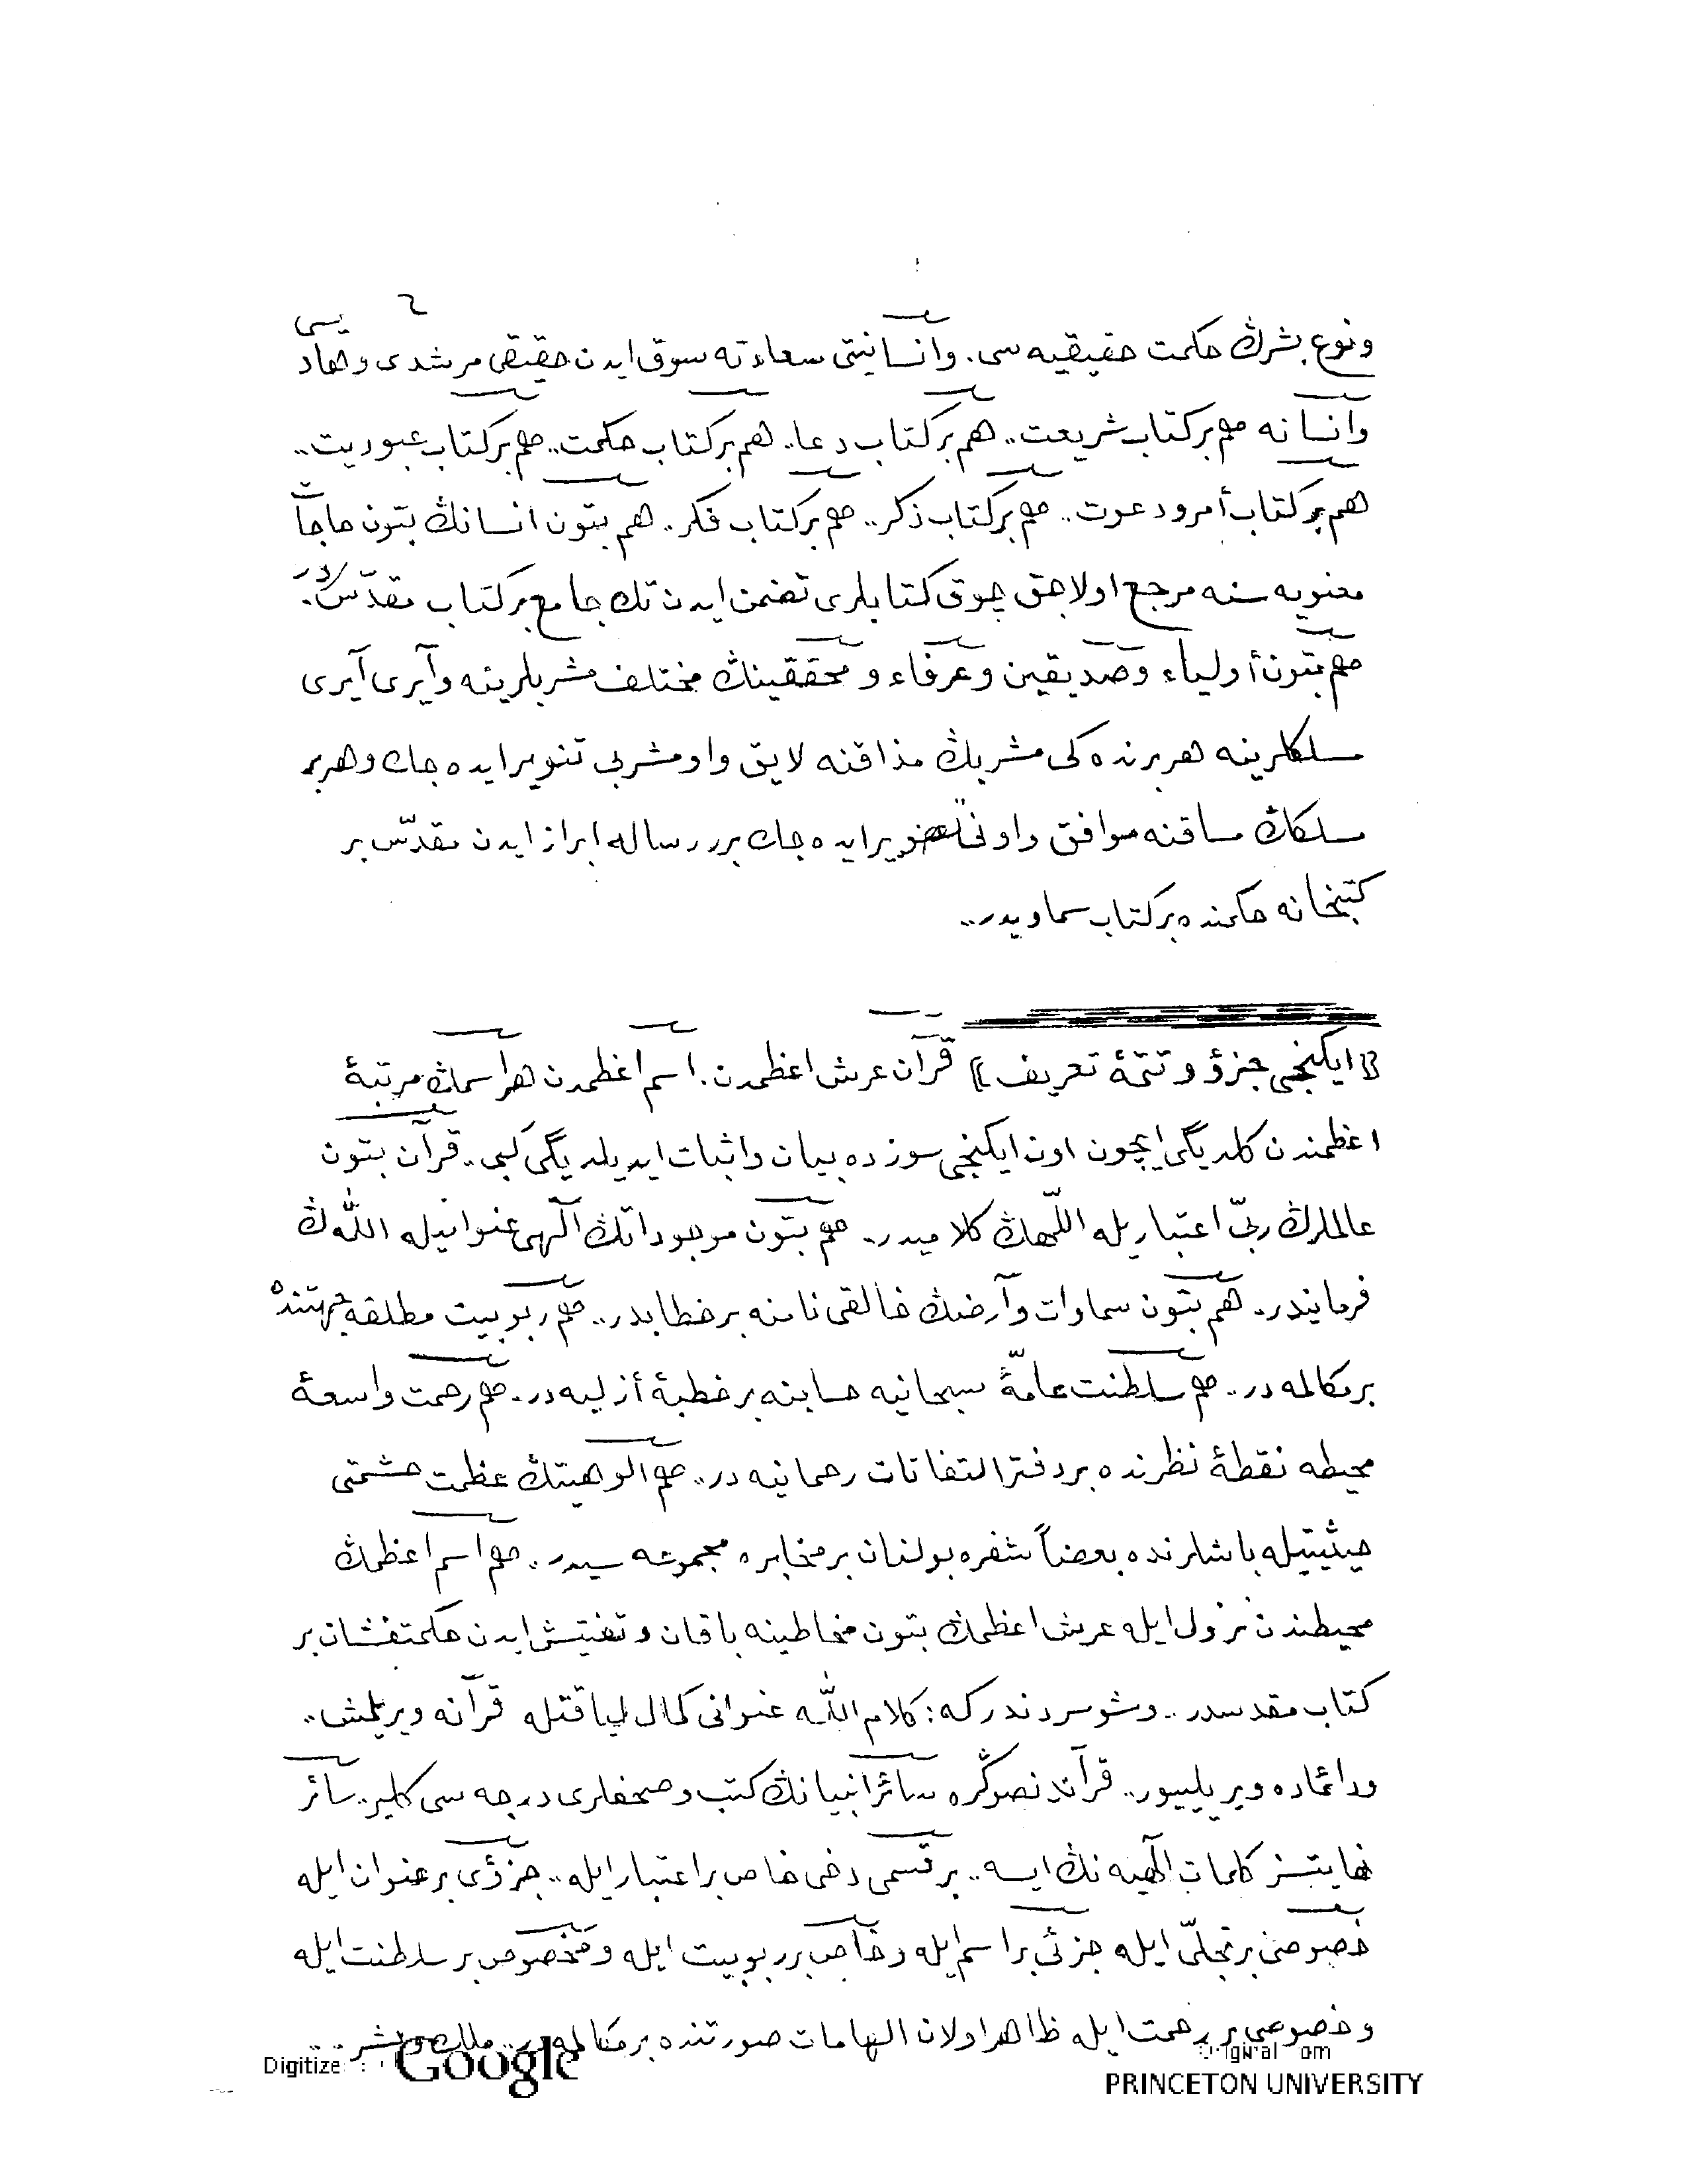 ٦
ونوع بشرڭ حكمت حقيقيه سى. وانسانيتى سعادته سوق ايدن حقيقى مرشدى وهاديسى
وانسانه هم بر كتاب شريعت.. هم بر كتاب دعا.. هم بر كتاب حكمت.. هم بر كتاب عبوديت..
هم بر كتاب أمر ودعوت.. هم بر كتاب ذكر.. هم بر كتاب فكر.. هم بتون انسانڭ بتون حاجات
معنويه سنه مرجع اولاجق چوق كتابلرى تضمن ايدن تك جامع بر كتاب مقدّسدر.
هم بتون أولياء وصدّيقين وعرفاء و محققينڭ مختلف مشربلرينه وآيرى آيرى
مسلكلرينه هر برنده كى مشربڭ مذاقنه لايق واو مشربى تنوير ايده جك وهر بر
مسلكڭ مساقنه موافق واونى تصوير ايده جك برر رساله ابراز ايدن مقدّس بر
كتبخانه حكمنده بر كتاب سماويدر..
﴿ايكنجى جزؤ و تتمّۀ تعريف﴾ قرآن عرش اعظمدن. اسم اعظمدن هر اسمڭ مرتبۀ
اعظمندن كلديگى ايچون اون ايكنجى سوزده بيان واثبات ايديلديگى كبى.. قرآن بتون
عالملرڭ ربّى اعتباريله اللّٰهڭ كلاميدر. هم بتون موجوداتڭ الٓهى عنوانيله اللّٰه ڭ
فرمانيدر. هم بتون سماوات وأرضڭ خالقى نامنه بر خطابدر.. هم ربوبيت مطلقه جهتنده
بر مكالمه در.. هم سلطنت عامّۀ سبحانيه حسابنه بر خطبۀ أزليه در. هم رحمت واسعۀ
محيطه نقطۀ نظرنده بر دفتر التفاتات رحمانيه در.. هم الوهيتڭ عظمت حشمتى
حيثيتيله باشلرنده بعضاً شفره بولنان بر مخابره مجموعه سيدر.. هم اسم اعظمڭ
محيطندن نزول ايله عرش اعظمڭ بتون محاطينه باقان و تفتيش ايدن حكمتفشان بر
كتاب مقدسدر.. وشو سردندر كه: كلام اللّٰه عنوانى كمال لياقتله قرآنه ويريلمش..
ودائماده ويريلييور.. قرآندن صوڭره سائر انبيانڭ كتب وصحفلرى درجه سى كلير.. سائر
نهايتسز كلمات الٓهيه نڭ ايسه.. بر قسمى دخى خاص بر اعتبار ايله.. جزؤى بر عنوان ايله
خصوصى بر تجلّى ايله جزئى بر اسم ايله وخاص بر ربوبيت ايله ومخصوص بر سلطنت ايله
وخصوصى بر رحمت ايله ظاهر اولان الهامات صورتنده بر مكالمه در.. ملك وبشر
Digitized Google
Original from
PRINCETON UNIVERSITY